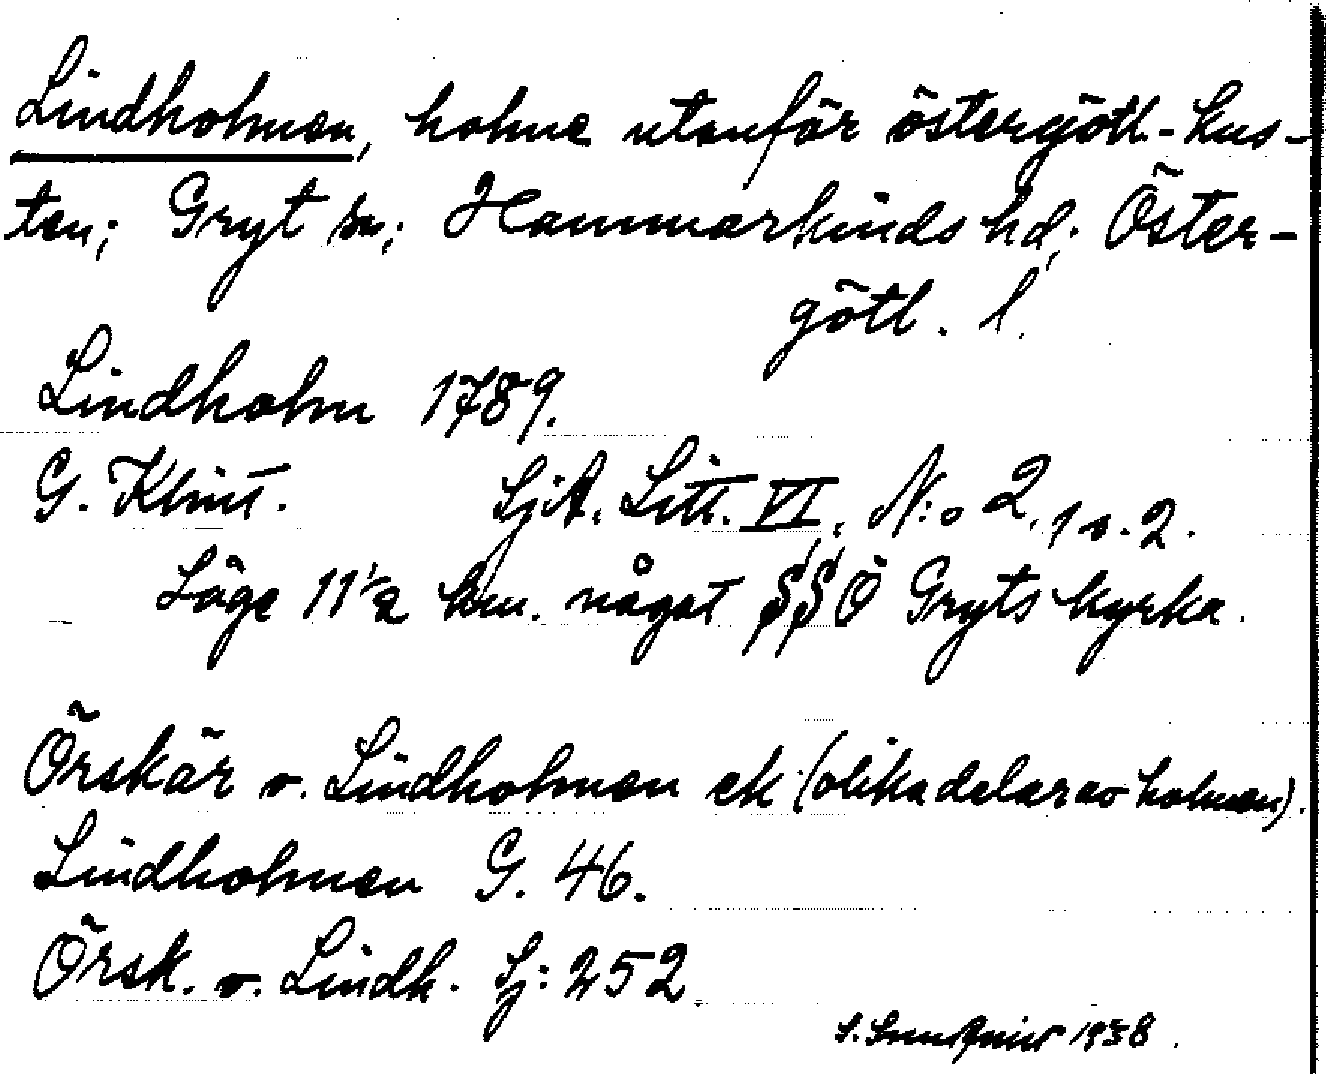 Lindholmen, holme utanför östergötl. kus-
ten; Gryt sn; Hammarkinds hd; Öster-
götl. l.
Lindholm 1789.
G. Klint. SjA. Litt. VI, N:o 2, 1 o. 2.
Läge 11 1/2 km. något SSÖ Gryts kyrka.
Örskär o. Lindholmen ek (olika delar av holmen).
Lindholmen G. 46.
Örsk. o. Lindh. Sj: 252
S. 1938.